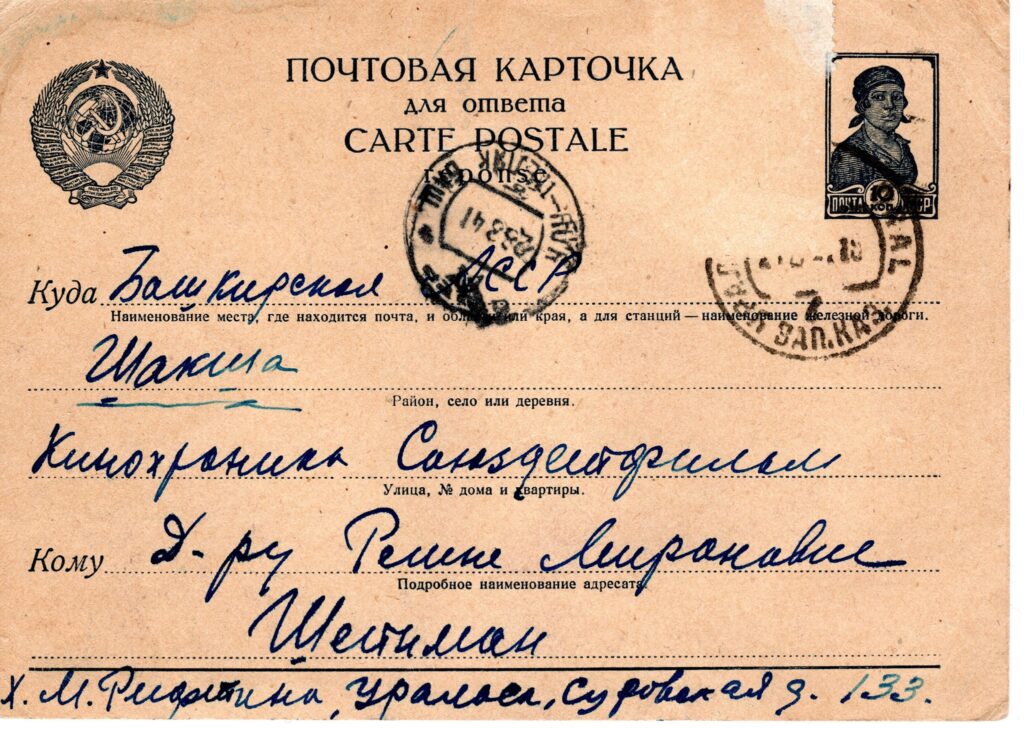 ПОЧТОВАЯ КАРТОЧКА
для ответа
CARTE POSTALE
réponse
ПОЧТА 10 КОП. СССР
23 8 41
URAL
ЗАП. КАЗ
Куда Башкирская АССР
Наименование места, где находится почта, и области или края, а для станций — наименование железной дороги.
Шакша
Район, село или деревня.
Кинохроника Союздетфильм
Улица, № дома и квартиры.
Кому Д-ру Ревине Мироновне
Подробное наименование адресата
Шестиман
Х. М. Рифтина, Уральск, Суровская д. 133.